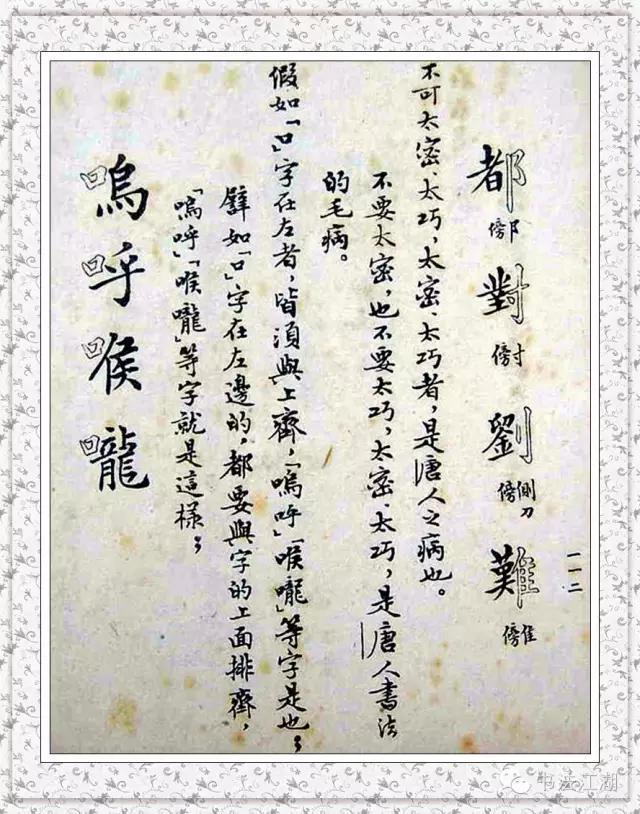 一一二
都對劉難
傍阝
傍寸
傍側刀
傍隹
不可太密、太巧，太密、太巧者，是唐人之病也。
不要太密，也不要太巧，太密、太巧，是唐人書法
的毛病。
假如「口」字在左者，皆須與上齊，「嗚呼」「喉嚨」等字是也；
譬如「口」字在左邊的，都要與字的上面排齊，
「嗚呼」「喉嚨」等字就是這樣；
嗚呼喉嚨
书法江湖